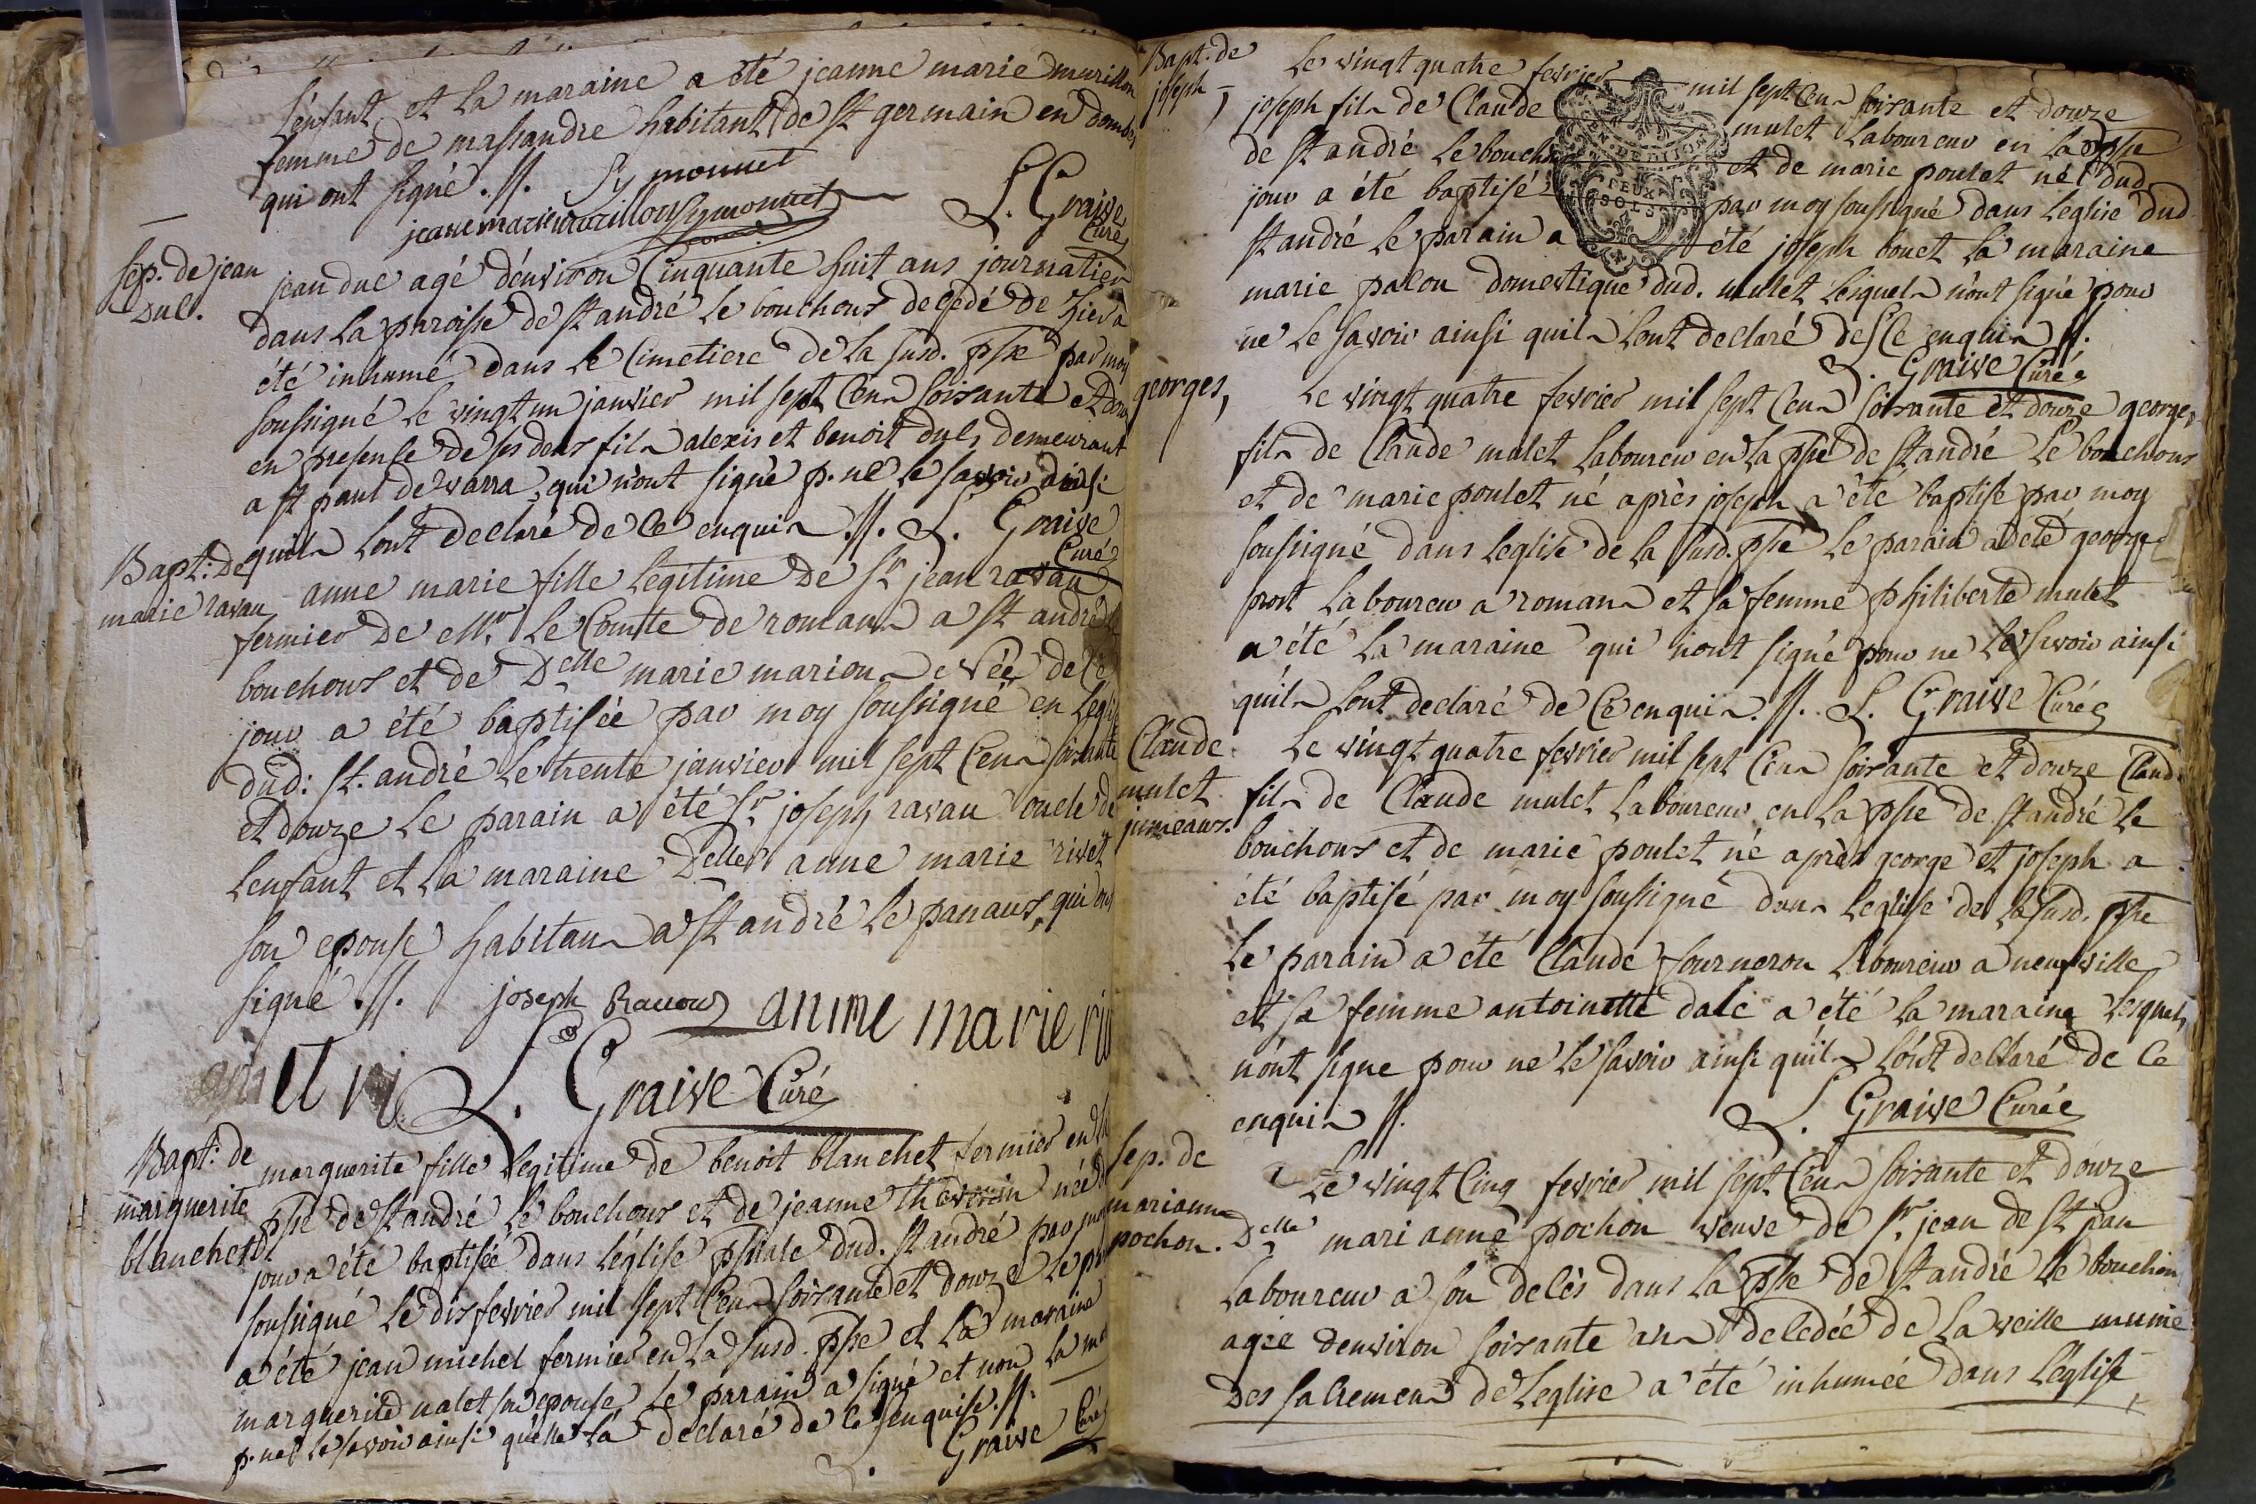 l'enfant et la maraine a été jeanne marie murillon
femme de massandre habitant de st germain en dombes
qui ont signé .//. Symonnet
jeanne marie murillon Symonnet L. Graive
Curé
Sep. de jean
Duc.
jean duc agé d'environ Cinquante huit ans journalier
dans la paroisse de st andré le bouchoux decedé de hier a
été inhumé dans le Cimetiere de la susd. psse par moy
soussigné le vingt un janvier mil sept Cens soixante et douze
en presense de ses deux fils alexis et benoit ducs demeurant
a st paul de varra, qui n'ont signé p. ne le savoir ainsi
quils l'ont declaré de Ce enquis .//. L. Graive
Curé
Bapt: de
marie ravau
anne marie fille legitime de sr jean ravau
fermier de Mr. le Comte de romans a st andré le
bouchoux et de Delle marie marion Née de Ce
jour a été baptisée par moy soussigné en leglise
dud: st. andré le trente janvier mil sept Cens soixante
et douze le parain a été sr joseph ravau oncle de
lenfant et la maraine Delle anne marie rivet
son epouse habitans a st andré le panaux, qui ont
signé .//. joseph Ravoux anme marie riv
L. Graive Curé
Bapt: de
marguerite
blanchet
marguerite fille legitime de benoit blanchet fermier en la
psse de st andré le bouchoux et de jeanne thevenin née de
jour a été baptisée dans léglise pssiale dud. st andré par moy
soussigné le dix fevrier mil sept Cens soixante et douze le pa
a été jean michel fermier en la susd. psse et la maraine
marguerite nalet son epouse le parain a signé et non la ma
p. ne le savoir ainsi quelle la declaré de Ce enquise .//.
L. Graive Curé
Bapt: de
joseph
le vingt quatre fevrier mil sept Cens soixante et douze
joseph fils de Claude mulet laboureur en la psse
de st andré le bouchoux et de marie poulet né dud.
jour a été baptisé par moy soussigné dans leglise dud
st andré le parain a été joseph bouet la maraine
marie palon domestique dud. mulet lesquels n'ont signé pour
ne le savoir ainsi quils lont declaré de Ce enquis .//.
L. Graive Curé
GEN. DE DIJON
DEUX
SOLS
georges,
Le vingt quatre fevrier mil sept Cens soixante et douze georges
fils de Claude mulet laboureur en la psse de st andré le bouchoux
et de marie poulet né après joseph a été baptisé par moy
soussigné dans leglise de la susd. psse le parain a été george
prost laboureur a romans et sa femme philiberte mulet
a été la maraine qui n'ont signé pour ne le savoir ainsi
quils l'ont declaré de Ce enquis .//. L. Graive Curé
Claude
mulet
jumeaux.
Le vingt quatre fevrier mil sept Cens soixante et douze Claude
fils de Claude mulet laboureur en la psse de st andré le
bouchoux et de marie poulet né après george et joseph a
été baptisé par moy soussigné dans leglise de la susd. psse
le parain a été Claude fourneron laboureur a neufville
et sa femme antoinette dalé a été la maraine lesquels
n'ont signe pour ne le savoir ainsi quils l'ont declaré de Ce
enquis //. L. Graive Curé
Sep. de
marianne
pochon.
Le vingt Cinq fevrier mil sept Cens soixante et douze
Delle mari anne pochon veuve de sr. jean de st jean
laboureur a son delès dans la psse de st andré le bouchoux
agée denviron soixante ans decedée de la veille munie
des sacremens de leglise a été inhumée dans l'église